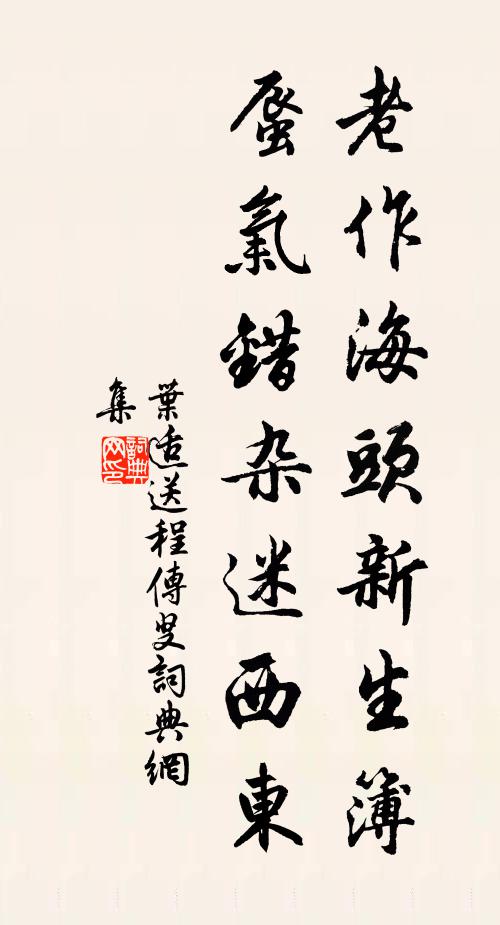 老作海頭新生簿
蜃氣錯杂迷西東
葉适送程傳叟詞典網
集
詞典
网印